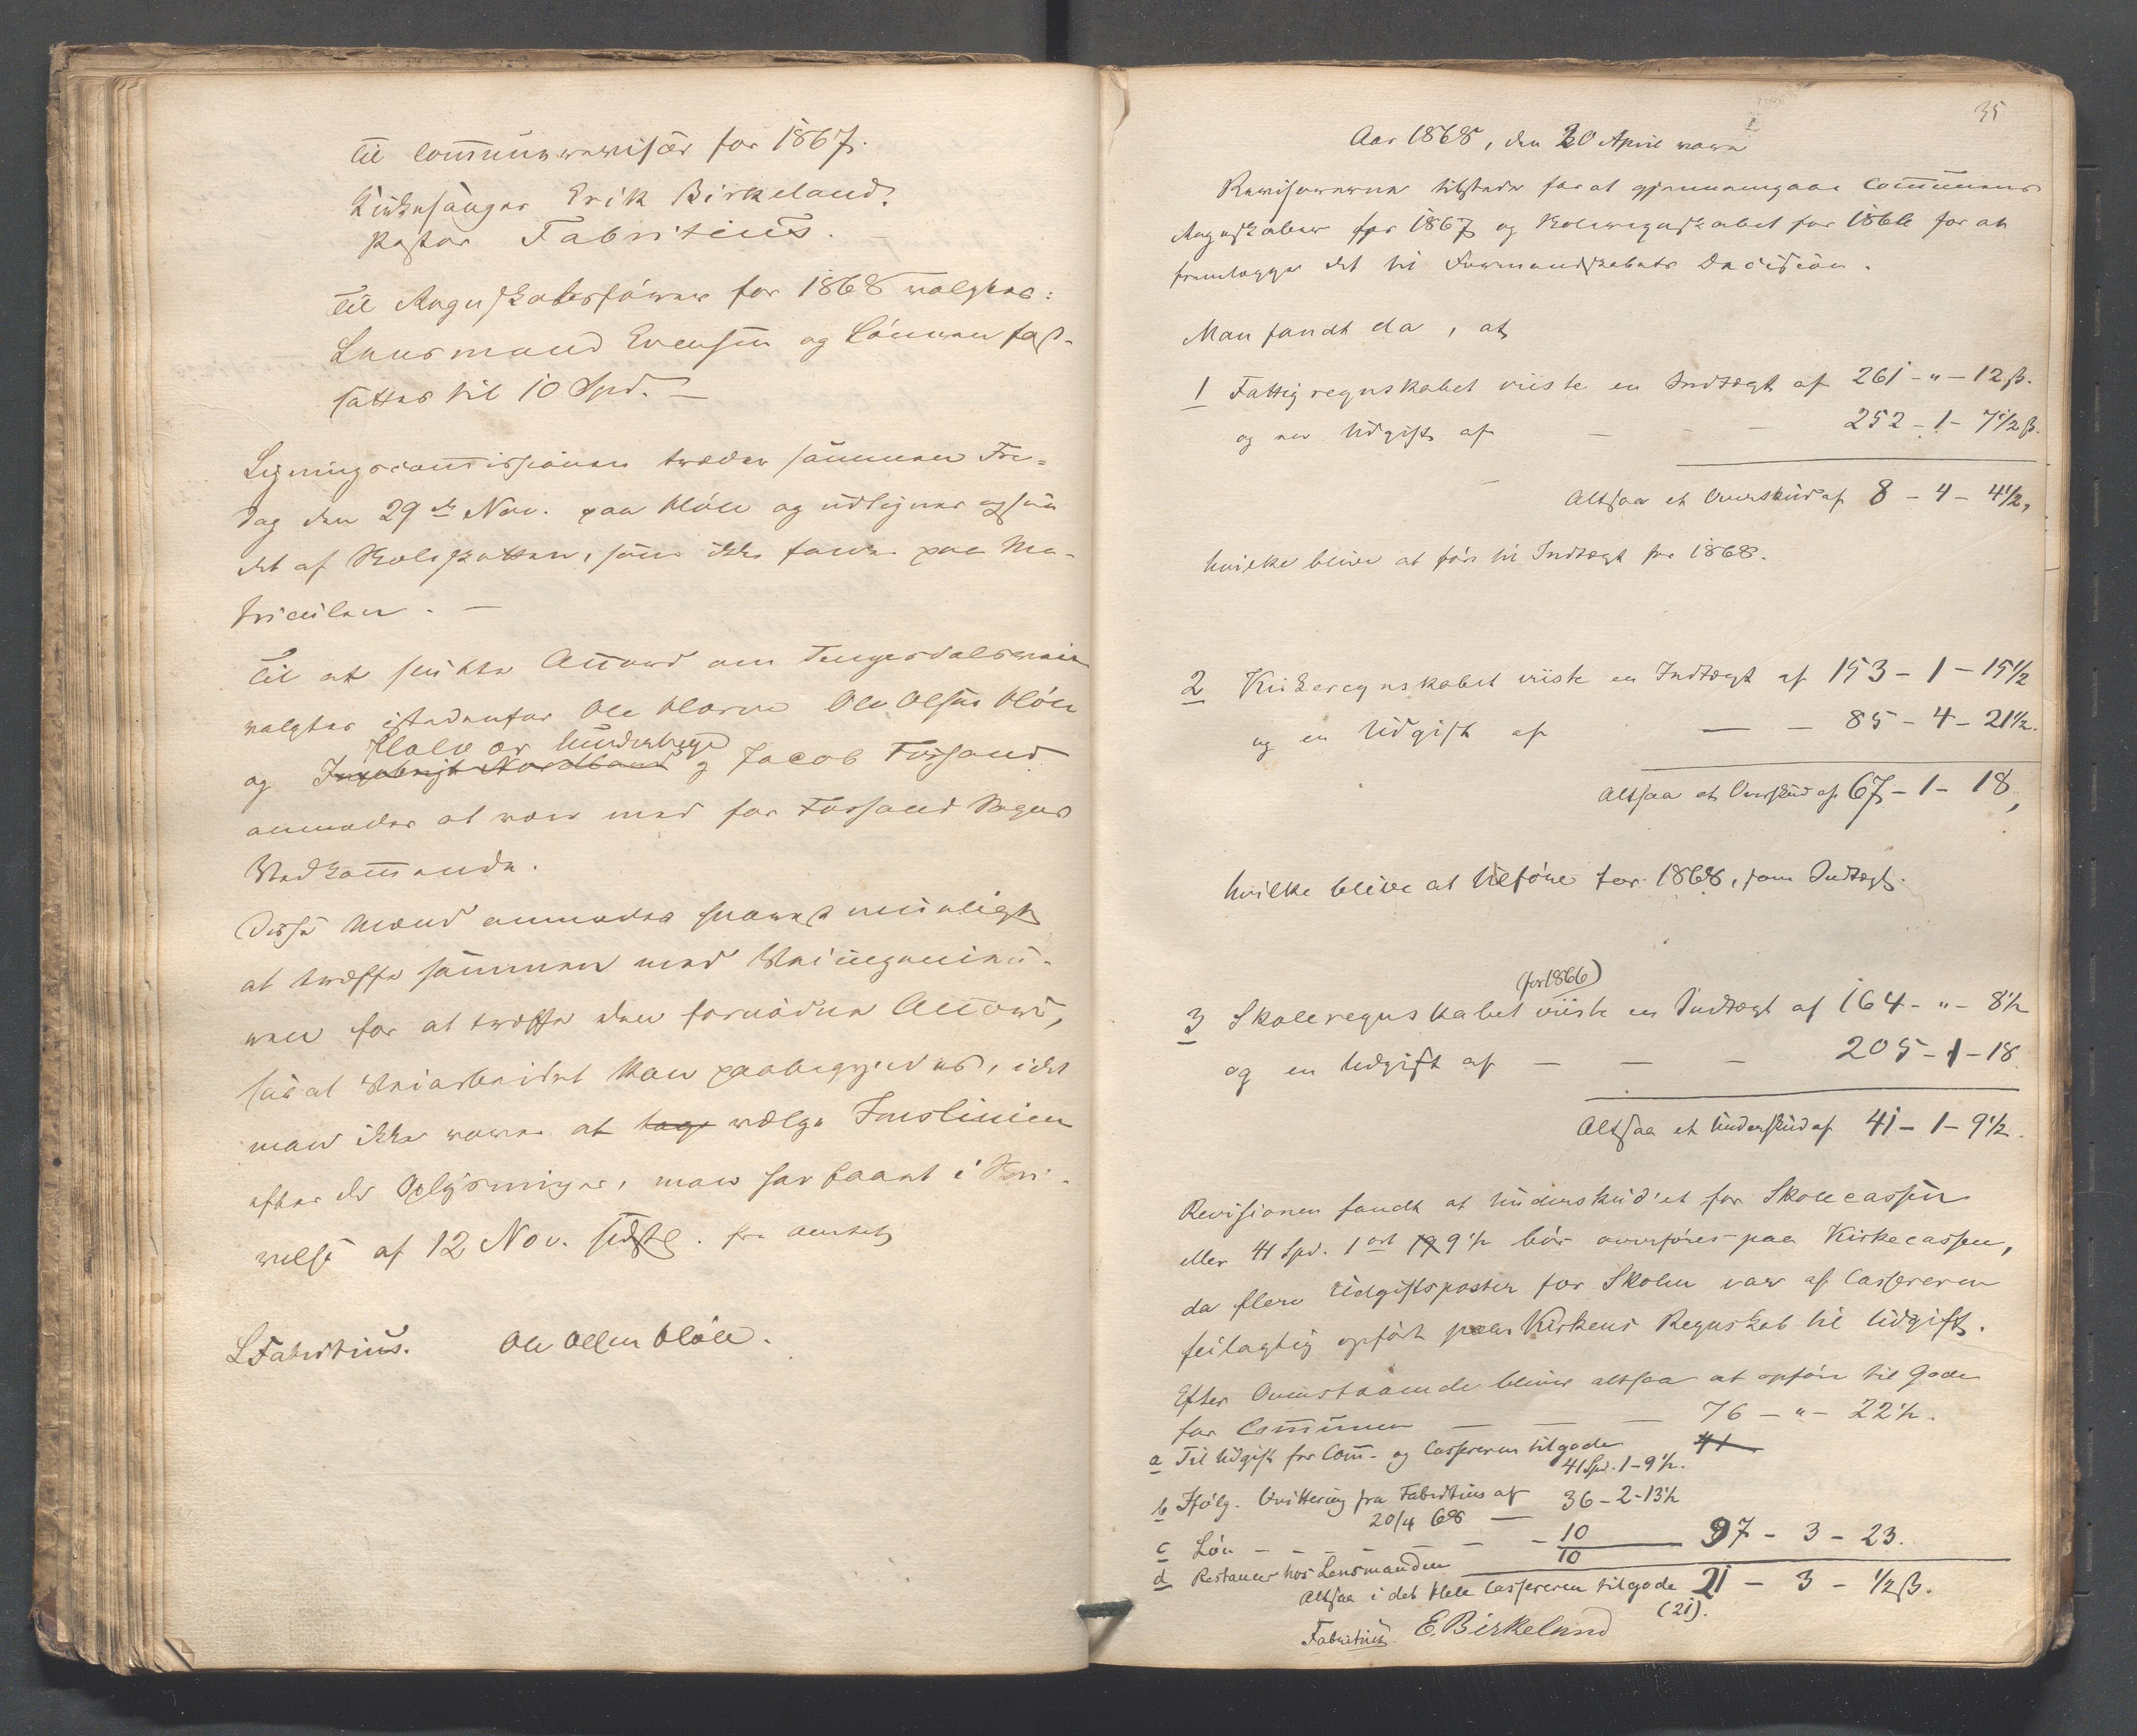 til Communerevisor for 1867.
Kirkesanger Erik Birkeland.
Pastor Fabritius.
Til Regnskabsfører for 1868 valgtes:
Lensmand Evensen og Lønnen fast-
sattes til 10 Spd. —
Ligningscommissionen træder sammen Fre-
dag den 29de Nov. paa Høle og udligner ogsaa
det af Skoleskatten, som ikke falder paa Ma-
triculen. —
Til at slutte Accord om Tengesdalsveien
valgtes istedenfor Ole Ole Olsen Høle
Halvor Underberge
og Ingebrigt Nordland og Jacob Fossand
anmodes at være med for Fossand Vegs
Vedkommende.
Disse Mænd anmodes snarest muligt
at træffe sammen med Veiingeniøi-
ren for at træffe den fornødne Accord,
saa at Veiarbeidet kan paabegyndes, idet
man ikke vover at tage vælge Inslinien
efter de Oplysninger, man har faaet i Skri-
velse af 12 Nov. sidstl. fra Amtet
LFabritius. Ole Olsen Høle.
35
Aar 1868, den 20 April vare
Revisorerne tilstede for at gjennemgaae Communens
Regnskaber for 1867 og Skoleregnskabet for 1866 for at
fremlægge det til Formandskabets Decision.
Man fandt da, at
1 Fattigregnskabet viiste en Indtægt af 261 - " - 12 ß.
og en Udgift af — — — 252 - 1 - 7 1/2 ß.
Altsaa et Overskud af 8 - 4 - 4 1/2,
hvilke bliver at føre til Indtægt for 1868.
2 Kirkeregnskabet viiste en Indtægt af 153 - 1 - 15 1/2
og en Udgift af — — 85 - 4 - 21 1/2.
Altsaa et Overskud af 67 - 1 - 18,
hvilke blive at tilføre for 1868, som Indtægt.
(for 1866)
3 Skoleregnskabet viiste en Indtægt af 164 - " - 8 1/2
og en Udgift af — — — 205 - 1 - 18.
Altsaa et Underskud af 41 - 1 - 9 1/2.
Revisionen fandt at Underskudet for Skolecassen
eller 41 Spd. 1 ort 19 9 1/2 bør overføres paa Kirkecassen,
da flere Udgiftsposter for Skolen var af Cassereren
feilagtig opført paa Kirkens Regnskab til Udgift.
Efter Ovenstaaende bliver altsaa at opføre til Gode
for Communen — — — 76 - " - 22 1/2.
a Til Udgift for Com. og Cassereren tilgode 41
41 Spd. 1 - 9 1/2.
b Ifølg. Qvittering fra Fabritius af 36 - 2 - 13 1/2
20/4 68 —
c Løn — — — — — 10 97 - 3 - 23.
d Restancer hos Lensmanden 10
Altsaa i det Hele Cassereren tilgode 21 - 3 - 1/2 ß.
(21).
Fabritius. E. Birkeland